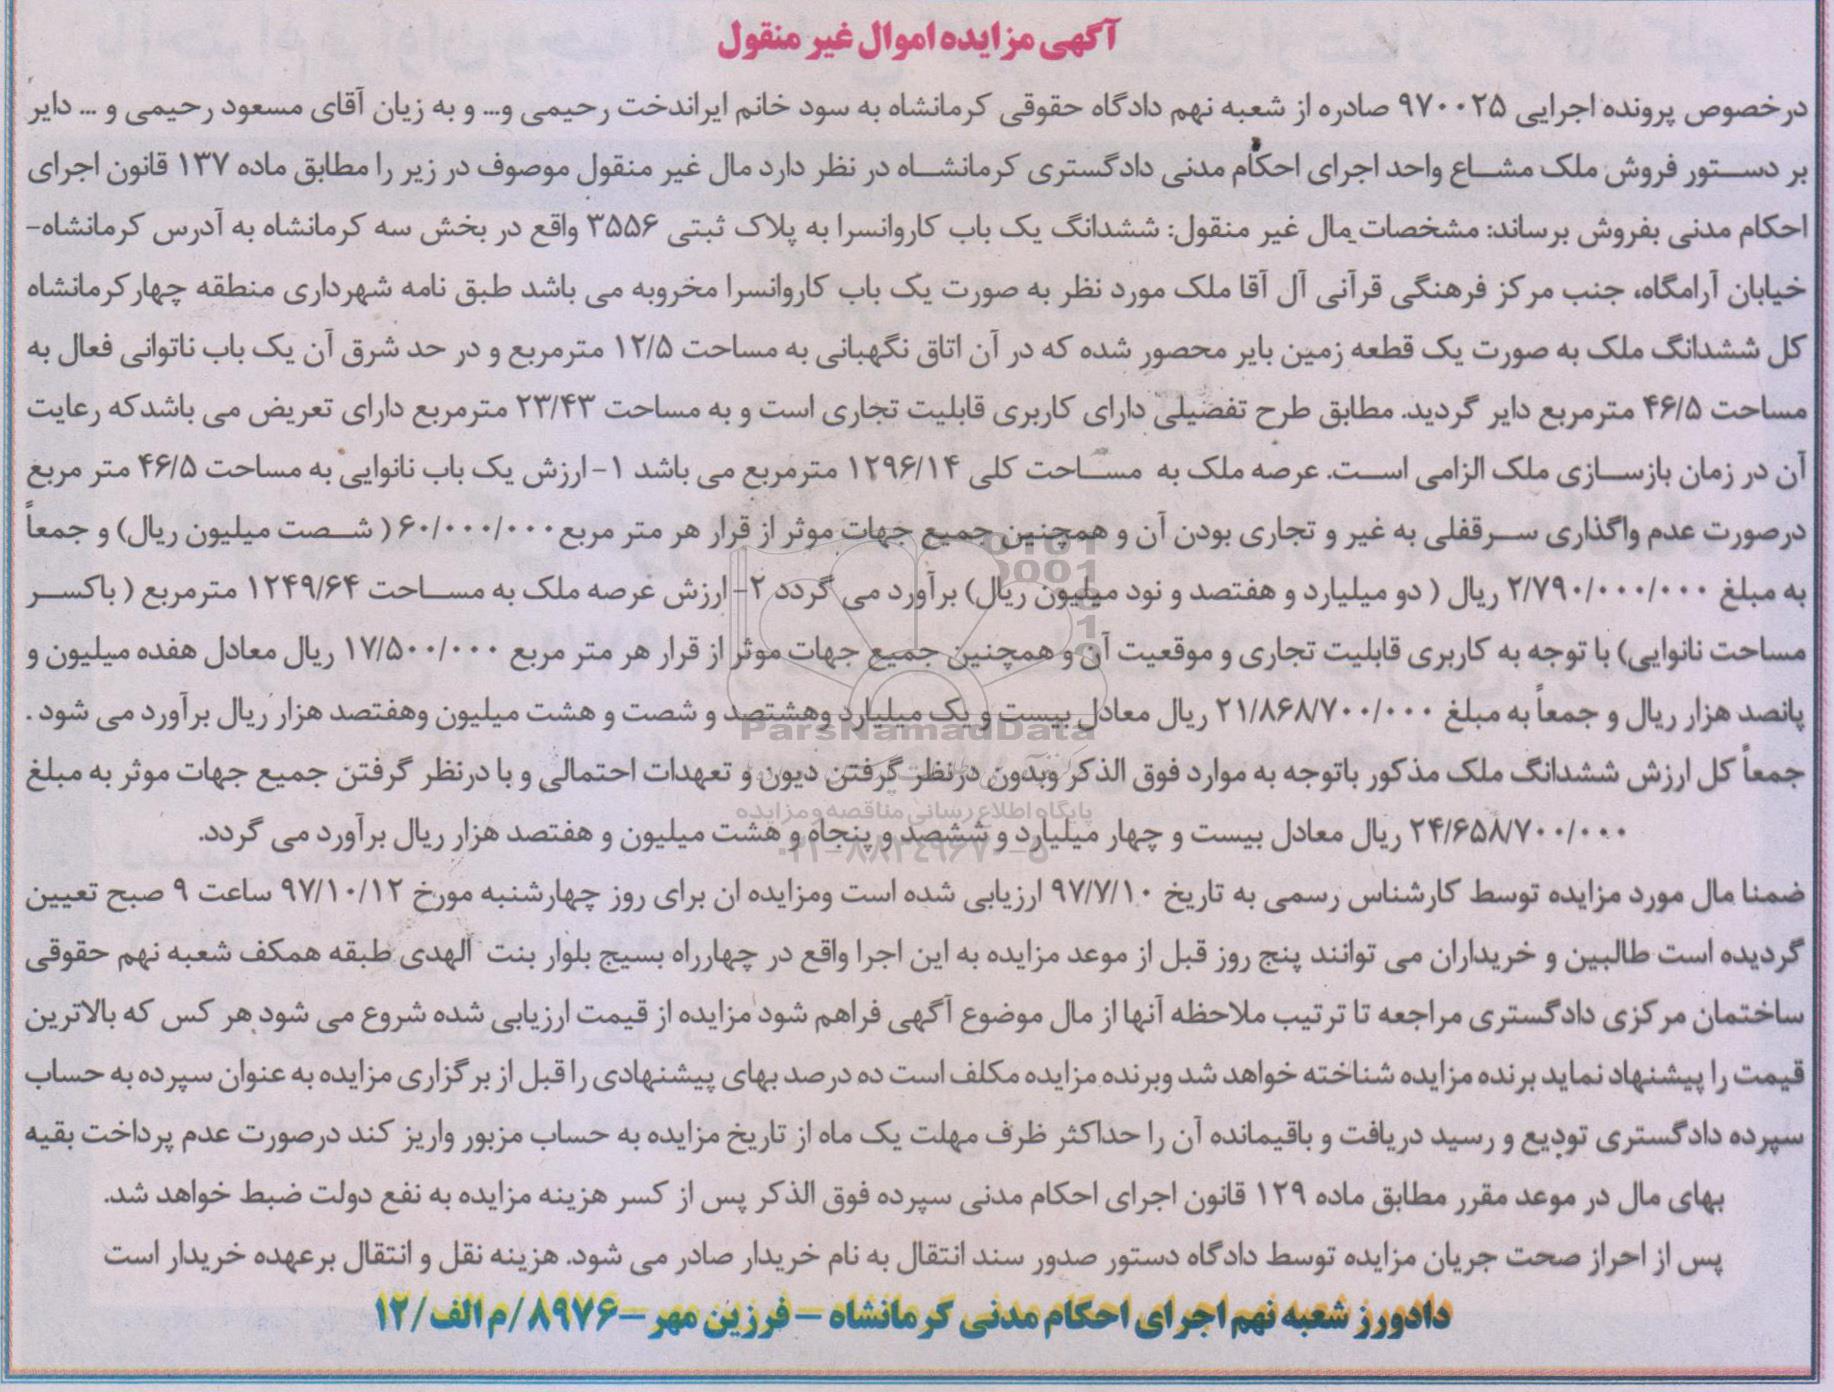 آگهی مزایده اموال غیر منقول
درخصوص پرونده اجرایی ۹۷۰۰۲۵ صادره از شعبه نهم دادگاه حقوقی کرمانشاه به سود خانم ایراندخت رحیمی و... و به زیان آقای مسعود رحیمی و ... دایر
بر دستور فروش ملک مشاع واحد اجرای احکام مدنی دادگستری کرمانشاه در نظر دارد مال غیر منقول موصوف در زیر را مطابق ماده ۱۳۷ قانون اجرای
احکام مدنی بفروش برساند: مشخصات مال غیر منقول: ششدانگ یک باب کاروانسرا به پلاک ثبتی ۳۵۵۶ واقع در بخش سه کرمانشاه به آدرس کرمانشاه-
خیابان آرامگاه، جنب مرکز فرهنگی قرآنی آل آقا ملک مورد نظر به صورت یک باب کاروانسرا مخروبه می باشد طبق نامه شهرداری منطقه چهارکرمانشاه
کل ششدانگ ملک به صورت یک قطعه زمین بایر محصور شده که در آن اتاق نگهبانی به مساحت ۱۲/۵ مترمربع و در حد شرق آن یک باب ناتوانی فعال به
مساحت ۴۶/۵ مترمربع دایر گردید. مطابق طرح تفضیلی دارای کاربری قابلیت تجاری است و به مساحت ۲۳/۴۳ مترمربع دارای تعریض می باشدکه رعایت
آن در زمان بازسازی ملک الزامی است. عرصه ملک به مساحت کلی ۱۲۹۶/۱۴ مترمربع می باشد ۱- ارزش یک باب نانوایی به مساحت ۴۶/۵ متر مربع
درصورت عدم واگذاری سرقفلی به غیر و تجاری بودن آن و همچنین جمیع جهات موثر از قرار هر متر مربع ۶۰/۰۰۰/۰۰۰ ( شصت میلیون ریال) و جمعاً
به مبلغ ۲/۷۹۰/۰۰۰/۰۰۰ ریال ( دو میلیارد و هفتصد و نود میلیون ریال) برآورد می گردد ۲- ارزش عرصه ملک به مساحت ۱۲۴۹/۶۴ مترمربع ( باکسر
مساحت نانوایی) با توجه به کاربری قابلیت تجاری و موقعیت آن و همچنین جمیع جهات موثر از قرار هر متر مربع ۱۷/۵۰۰/۰۰۰ ریال معادل هفده میلیون و
پانصد هزار ریال و جمعاً به مبلغ ۲۱/۸۶۸/۷۰۰/۰۰۰ ریال معادل بیست و یک میلیارد وهشتصد و شصت و هشت میلیون وهفتصد هزار ریال برآورد می شود .
جمعاً کل ارزش ششدانگ ملک مذکور باتوجه به موارد فوق الذکر وبدون درنظر گرفتن دیون و تعهدات احتمالی و با درنظر گرفتن جمیع جهات موثر به مبلغ
۲۴/۶۵۸/۷۰۰/۰۰۰ ریال معادل بیست و چهار میلیارد و ششصد و پنجاه و هشت میلیون و هفتصد هزار ریال برآورد می گردد.
ضمنا مال مورد مزایده توسط کارشناس رسمی به تاریخ ۹۷/۷/۱۰ ارزیابی شده است ومزایده ان برای روز چهارشنبه مورخ ۹۷/۱۰/۱۲ ساعت ۹ صبح تعیین
گردیده است طالبین و خریداران می توانند پنج روز قبل از موعد مزایده به این اجرا واقع در چهارراه بسیج بلوار بنت الهدی طبقه همکف شعبه نهم حقوقی
ساختمان مرکزی دادگستری مراجعه تا ترتیب ملاحظه آنها از مال موضوع آگهی فراهم شود مزایده از قیمت ارزیابی شده شروع می شود هر کس که بالاترین
قیمت را پیشنهاد نماید برنده مزایده شناخته خواهد شد وبرنده مزایده مکلف است ده درصد بهای پیشنهادی را قبل از برگزاری مزایده به عنوان سپرده به حساب
سپرده دادگستری تودیع و رسید دریافت و باقیمانده آن را حداکثر ظرف مهلت یک ماه از تاریخ مزایده به حساب مزبور واریز کند درصورت عدم پرداخت بقیه
بهای مال در موعد مقرر مطابق ماده ۱۲۹ قانون اجرای احکام مدنی سپرده فوق الذکر پس از کسر هزینه مزایده به نفع دولت ضبط خواهد شد.
پس از احراز صحت جریان مزایده توسط دادگاه دستور صدور سند انتقال به نام خریدار صادر می شود. هزینه نقل و انتقال برعهده خریدار است
دادورز شعبه نهم اجرای احکام مدنی کرمانشاه – فرزین مهر –۸۹۷۶/م الف/۱۲
ParsNamadData
پایگاه اطلاع رسانی مناقصه و مزایده
۰۲۱-۸۸۳۴۹۶۷۰-۵